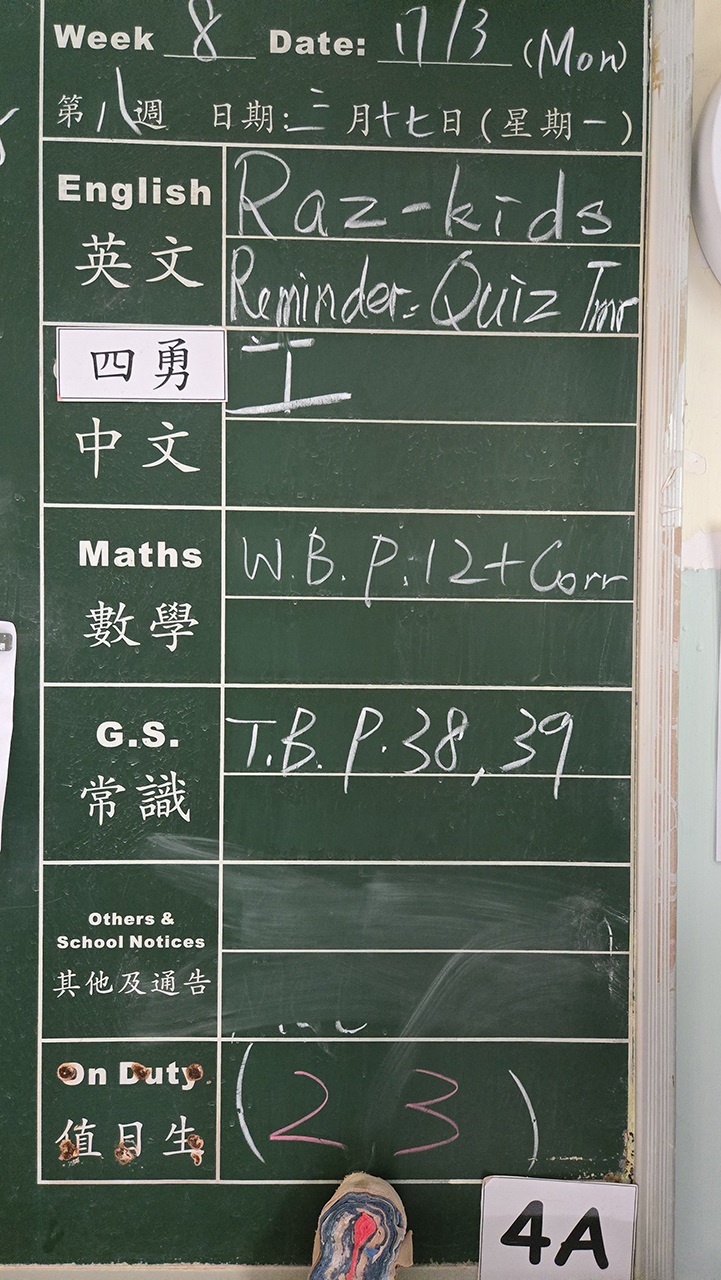 Week 8 Date: 17/3 (Mon)
第八週 日期:三月十七日(星期一)
English Raz-kids
英文 Reminder: Quiz Tmr
四勇
中文
Maths W.B. P.12+Corr
數學
G.S. T.B. P.38, 39
常識
Others &
School Notices
其他及通告
On Duty (2 3)
值日生
4A